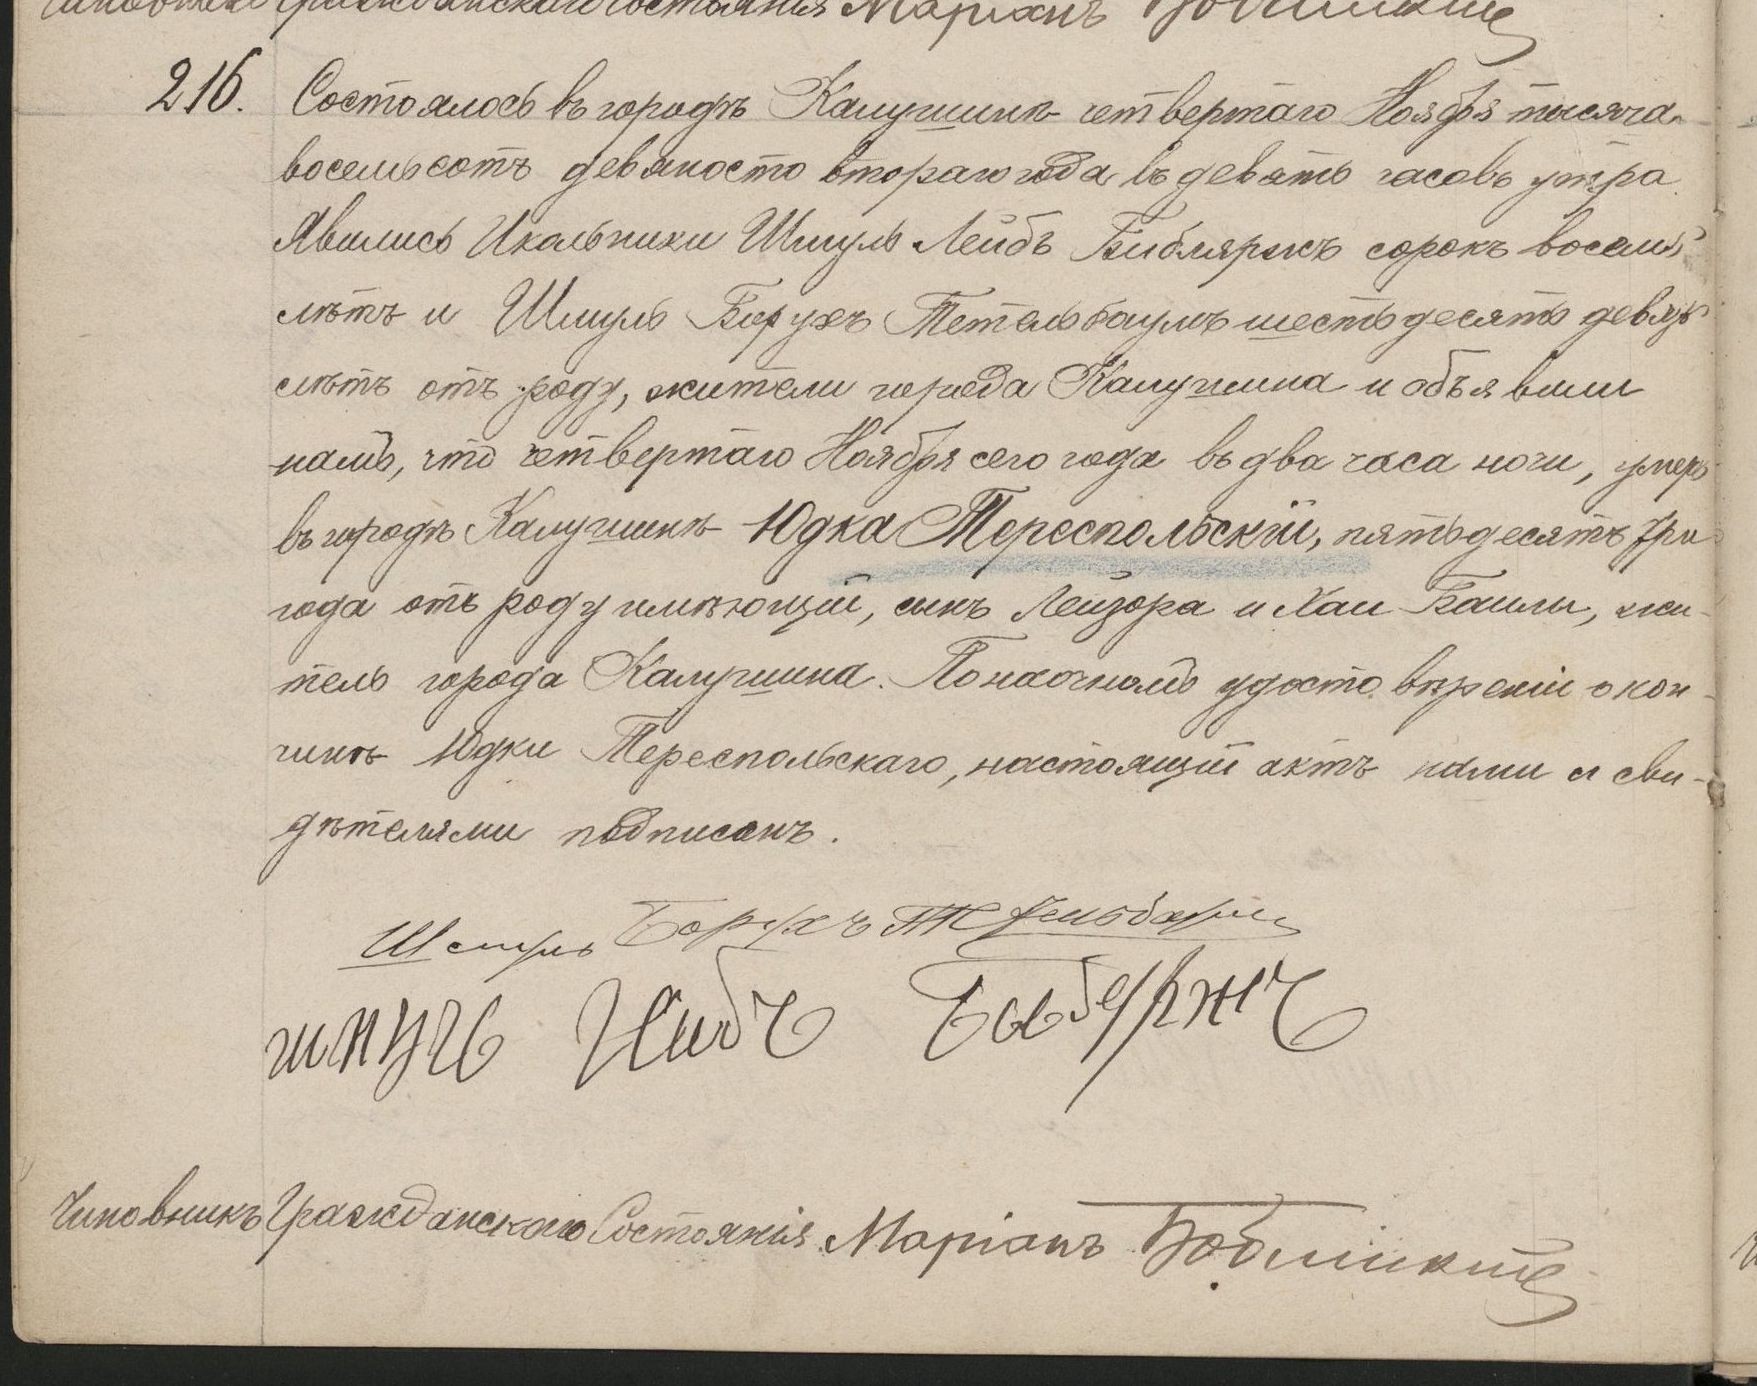 Гражданскаго Состоянія Маріанъ
216. Состоялось въ городѣ Калушинѣ четвертаго Ноября тысяча
восемьсотъ девяносто втораго года въ девять часовъ утра.
Явились Школьники Шмуль Лейбъ сорокъ восемь
лѣтъ и Шмуль Борухъ Тетельбаумъ шестьдесятъ девять
лѣтъ отъ роду, жители города Калушина и объявили
намъ, что четвертаго Ноября сего года въ два часа ночи, умеръ
въ городѣ Калушинѣ Юдка Тереспольскій, пятьдесятъ три
года отъ роду имѣющій, сынъ Лейзора и Хаи Баилы, жи-
тель города Калушина. По наочномъ удостовѣреніи о кон-
чинѣ Юдки Тереспольскаго, настоящій актъ нами и сви-
дѣтелями подписанъ.
Шмуль Борухъ
Чиновникъ Гражданскаго Состоянія Маріанъ